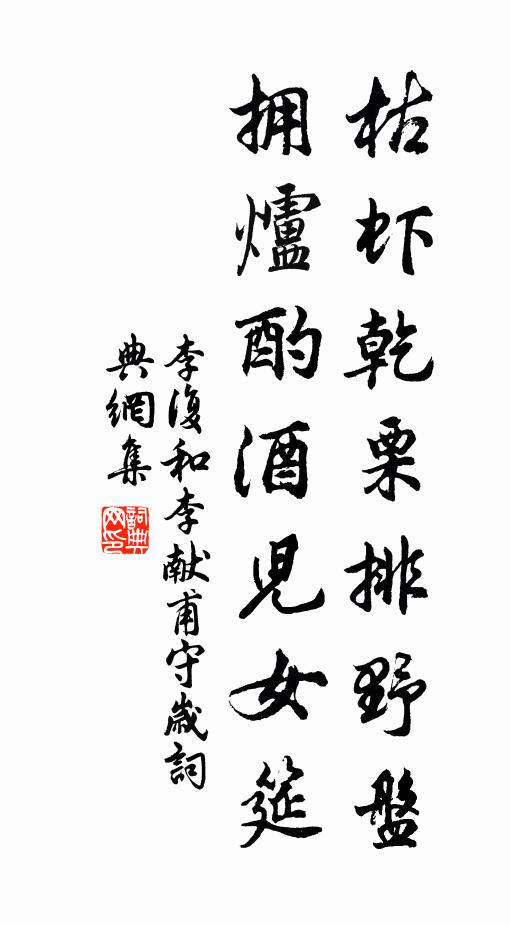 枯虾乾栗排野盤
拥爐酌酒児女筵
李復和李献甫守歲詞
典網集
詞典网印